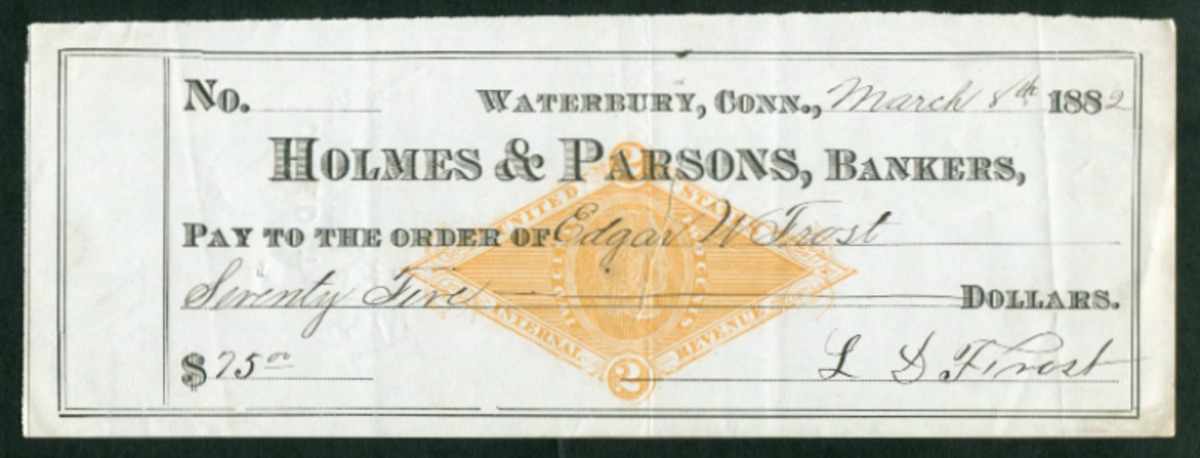 No.
WATERBURY, CONN., March 8th 1882
HOLMES & PARSONS, BANKERS,
PAY TO THE ORDER OF Edgar W Frost
Seventy Five DOLLARS.
$75 00
L S Frost
2
UNITED STATES
INTERNAL REVENUE
2